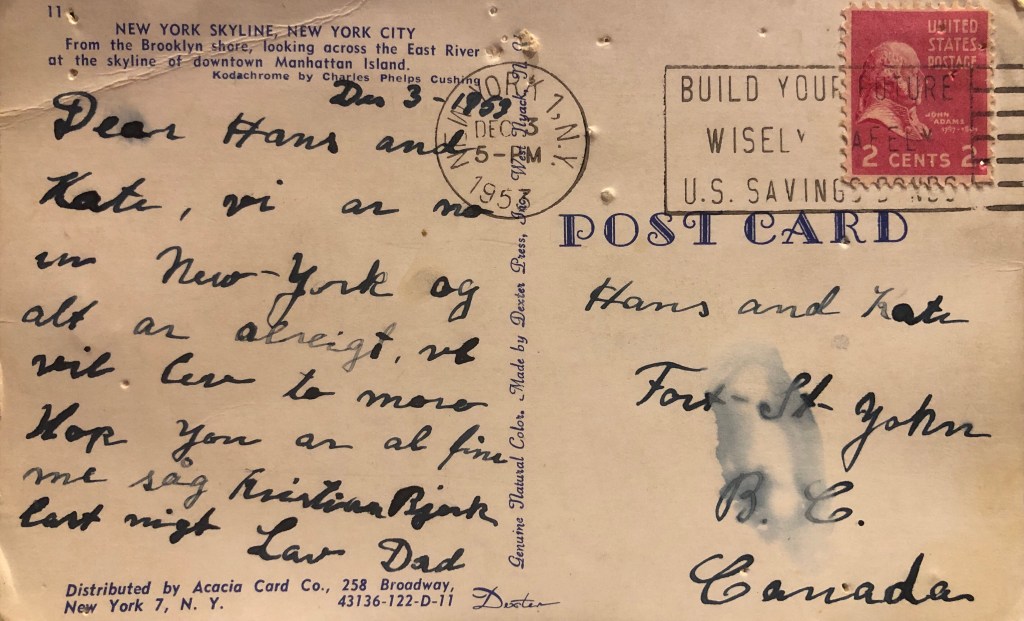 11
NEW YORK SKYLINE, NEW YORK CITY
From the Brooklyn shore, looking across the East River
at the skyline of downtown Manhattan Island.
Kodachrome by Charles Phelps Cushing
Des 3 - 1953
Dear Hans and
Kate, vi ar no
in New-York og
alt ar alreigt, vl
vil lev to moro
Hop you ar al fine
me såg Kristian Bjork
last nigt
Lav Dad
Distributed by Acacia Card Co., 258 Broadway,
New York 7, N. Y. 43136-122-D-11 Dexter
Genuine Natural Color. Made by Dexter Press, Inc. West Nyack, N.
NEW YORK 7, N.Y.
DEC 3
5-PM
1953
BUILD YOUR FUTURE
WISELY SAFELY
U.S. SAVINGS BONDS
UNITED
STATES
POSTAGE
JOHN
ADAMS
2 CENTS 2
POST CARD
Hans and Kate
Fort-St-John
B. C.
Canada